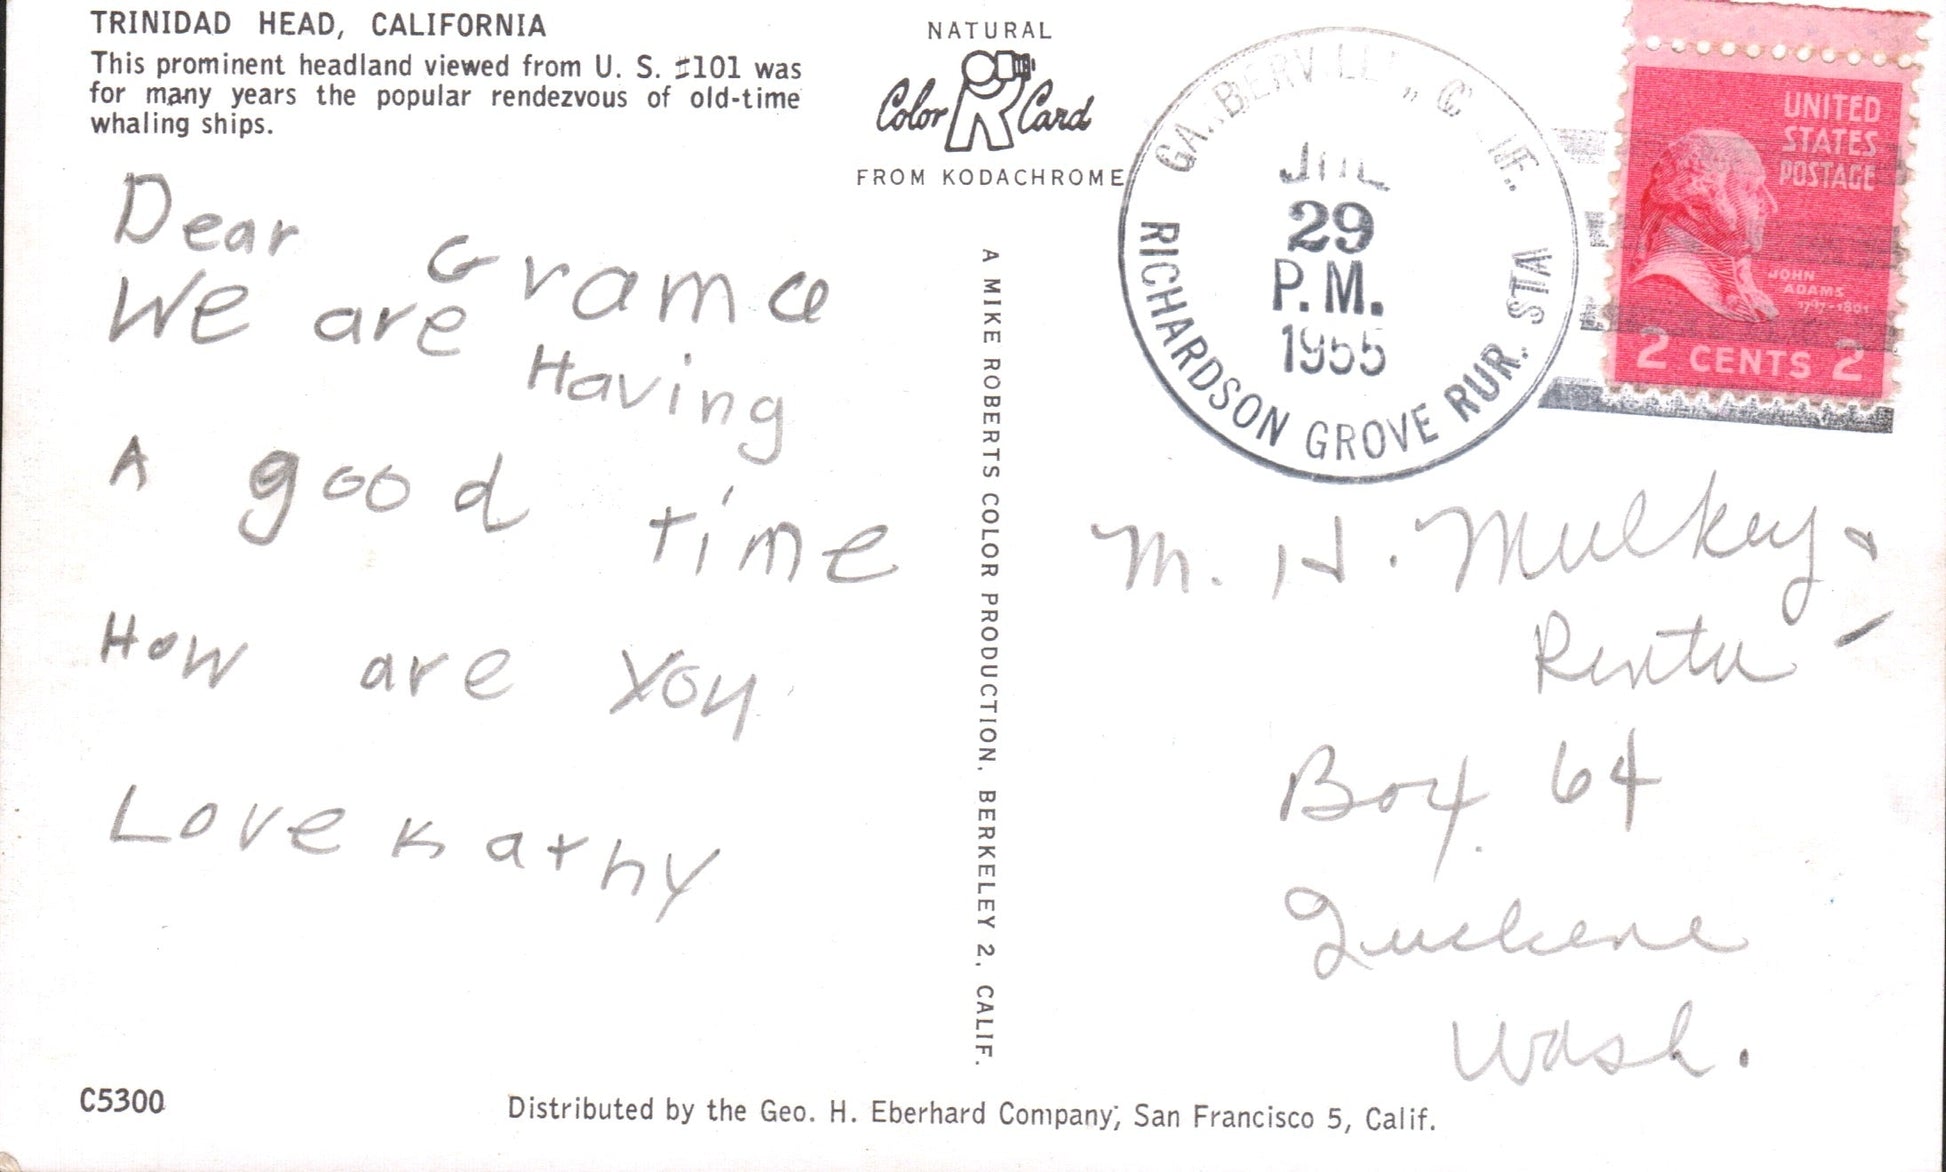 TRINIDAD HEAD, CALIFORNIA
This prominent headland viewed from U. S. #101 was
for many years the popular rendezvous of old-time
whaling ships.
NATURAL
Color Card
FROM KODACHROME
GARBERVILLE, CALIF.
JUL
29
P.M.
1955
RICHARDSON GROVE RUR. STA
UNITED
STATES
POSTAGE
JOHN
ADAMS
1797-1801
2 CENTS 2
Dear Grama
We are Having
A good time
How are You
Love Kathy
A MIKE ROBERTS COLOR PRODUCTION, BERKELEY 2, CALIF.
M. H. Mulkey &
Box 64
Wash.
C5300
Distributed by the Geo. H. Eberhard Company, San Francisco 5, Calif.